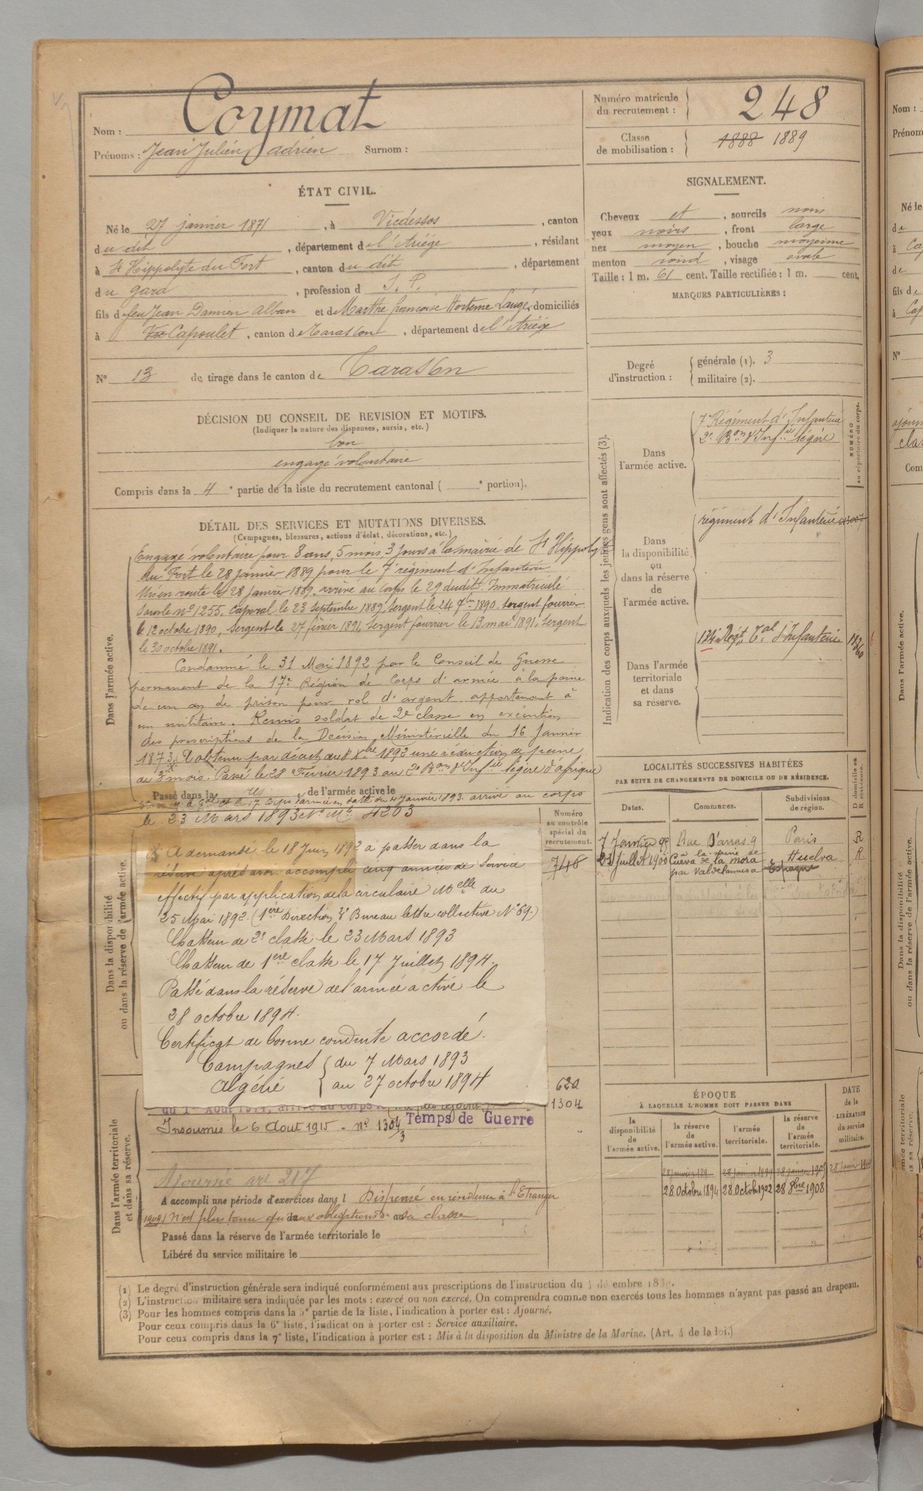 Nom : Coymat
Prénoms : Jean Julien, adrien Surnom :
Numéro matricule du recrutement : 248
Classe de mobilisation : 1888 1889
ÉTAT CIVIL.
Né le 27 janvier 1871, à Vicdessos, canton
du dit, département de l'Ariége, résidant
à St Hippolyte du Fort, canton du dit, département
du gard, profession d S. P.
fils de feu Jean Damien Alban et de Marthe françoise Hortense Laugé, domiciliés
à Capoulet, canton de Tarascon, département de l'Ariége
N° 13 de tirage dans le canton de Tarascon
SIGNALEMENT.
Cheveux et, sourcils noirs
yeux noirs, front large
nez moyen, bouche moyenne
menton rond, visage ovale
Taille : 1 m. 61 cent. Taille rectifiée : 1 m. cent.
MARQUES PARTICULIÈRES :
Degré d'instruction : générale (1). 3
militaire (2).
DÉCISION DU CONSEIL DE REVISION ET MOTIFS.
(Indiquer la nature des dispenses, sursis, etc.)
bon
engagé volontaire
Compris dans la 4e partie de la liste du recrutement cantonal ( e portion).
DÉTAIL DES SERVICES ET MUTATIONS DIVERSES.
(Campagnes, blessures, actions d'éclat, décorations, etc.)
Dans l'armée active.
Engagé volontaire pour 8 ans, 5 mois, 3 jours à la mairie de St Hippolyte
du Fort le 28 janvier 1889 pour le 7e régiment d'infanterie
Mis en route le 28 janvier 1889, arrivé au corps le 29 dudit. Immatriculé
sous le n° 1255. Caporal le 23 septembre 1889, Sergent le 24 1890. sergent fourrier
le 12 octobre 1890, Sergent le 27 février 1891, Sergent fourrier le 13 mai 1891. Sergent
le 30 octobre 1891.
Condamné le 31 Mai 1892 par le Conseil de Guerre
permanent de la 17e Région de Corps d'armée à la peine
de un an de prison pour vol d'argent appartenant à
un militaire. Remis soldat de 2e classe en exécution
des prescriptions de la Décision Ministérielle du 16 Janvier
1873. A obtenu par décret du 8 Xbre 1892 une réduction de peine
de 3 mois. Passé le 28 Février 1893 au 2e Bon d'Infie légère d'afrique
Passé dans la de l'armée active le
janvier 1893. arrivé au corps
le 23 Mars 1893 N° Mle 4203
Dans la disponibilité ou dans la réserve de l'armée active.
A demandé le 18 Juin 1892 à passer dans la
réserve après avoir accompli cinq années de Service
effectif par application de la circulaire Melle du
25 Mai 1892. (1ère Direction, 3e Bureau lettre collective N° 69.)
Chasseur de 2e classe le 23 Mars 1893
Chasseur de 1ère classe le 17 Juillet 1894.
Passé dans la réserve de l'armée active le
28 octobre 1894.
Certificat de bonne conduite accordé.
Campagnes du 7 Mars 1893
Algérie au 27 octobre 1894
Numéro au contrôle spécial du recrutement.
748
620
1304
Dans l'armée territoriale et dans sa réserve.
Temps de Guerre
Insoumis le 6 Aout 1915 - n° 1304/3
Ajourné n° 217
A accompli une période d'exercices dans l Dispensé en résidence à l'Etranger
(1908) N'est plus tenu qu'aux obligations de sa classe
Passé dans la réserve de l'armée territoriale le
Libéré du service militaire le
Indication des corps auxquels les jeunes gens sont affectés (3).
Dans l'armée active.
7e Régiment d'Infanterie
2e Bon d'Infie légère
Dans la disponibilité ou dans la réserve de l'armée active.
régiment d'Infanterie
Dans l'armée territoriale et dans sa réserve.
134e Régt Tal d'Infanterie
LOCALITÉS SUCCESSIVES HABITÉES
PAR SUITE DE CHANGEMENTS DE DOMICILE OU DE RÉSIDENCE.
Dates. Communes. Subdivisions de région.
7 Janvier Rue D'arras 9 Paris
Juillet 1908 Cueva de la mora par Valdelamusa Huelva Espagne
ÉPOQUE
À LAQUELLE L'HOMME DOIT PASSER DANS
la disponibilité de l'armée active. la réserve de l'armée active. l'armée territoriale. la réserve de l'armée territoriale.
DATE de la LIBÉRATION du service militaire.
28 Octobre 1894 28 Octob 1902 28 8bre 1908
(1) Le degré d'instruction générale sera indiqué conformément aux prescriptions de l'instruction du
(2) L'instruction militaire sera indiquée par les mots : exercé ou non exercé. On comprendra comme non exercés tous les hommes n'ayant pas passé au drapeau.
(3) Pour les hommes compris dans la 5e partie de la liste, l'indication à porter est : Ajourné.
Pour ceux compris dans la 6e liste, l'indication à porter est : Service auxiliaire.
Pour ceux compris dans la 7e liste, l'indication à porter est : Mis à la disposition du Ministre de la Marine. (Art. 4 de la loi.)